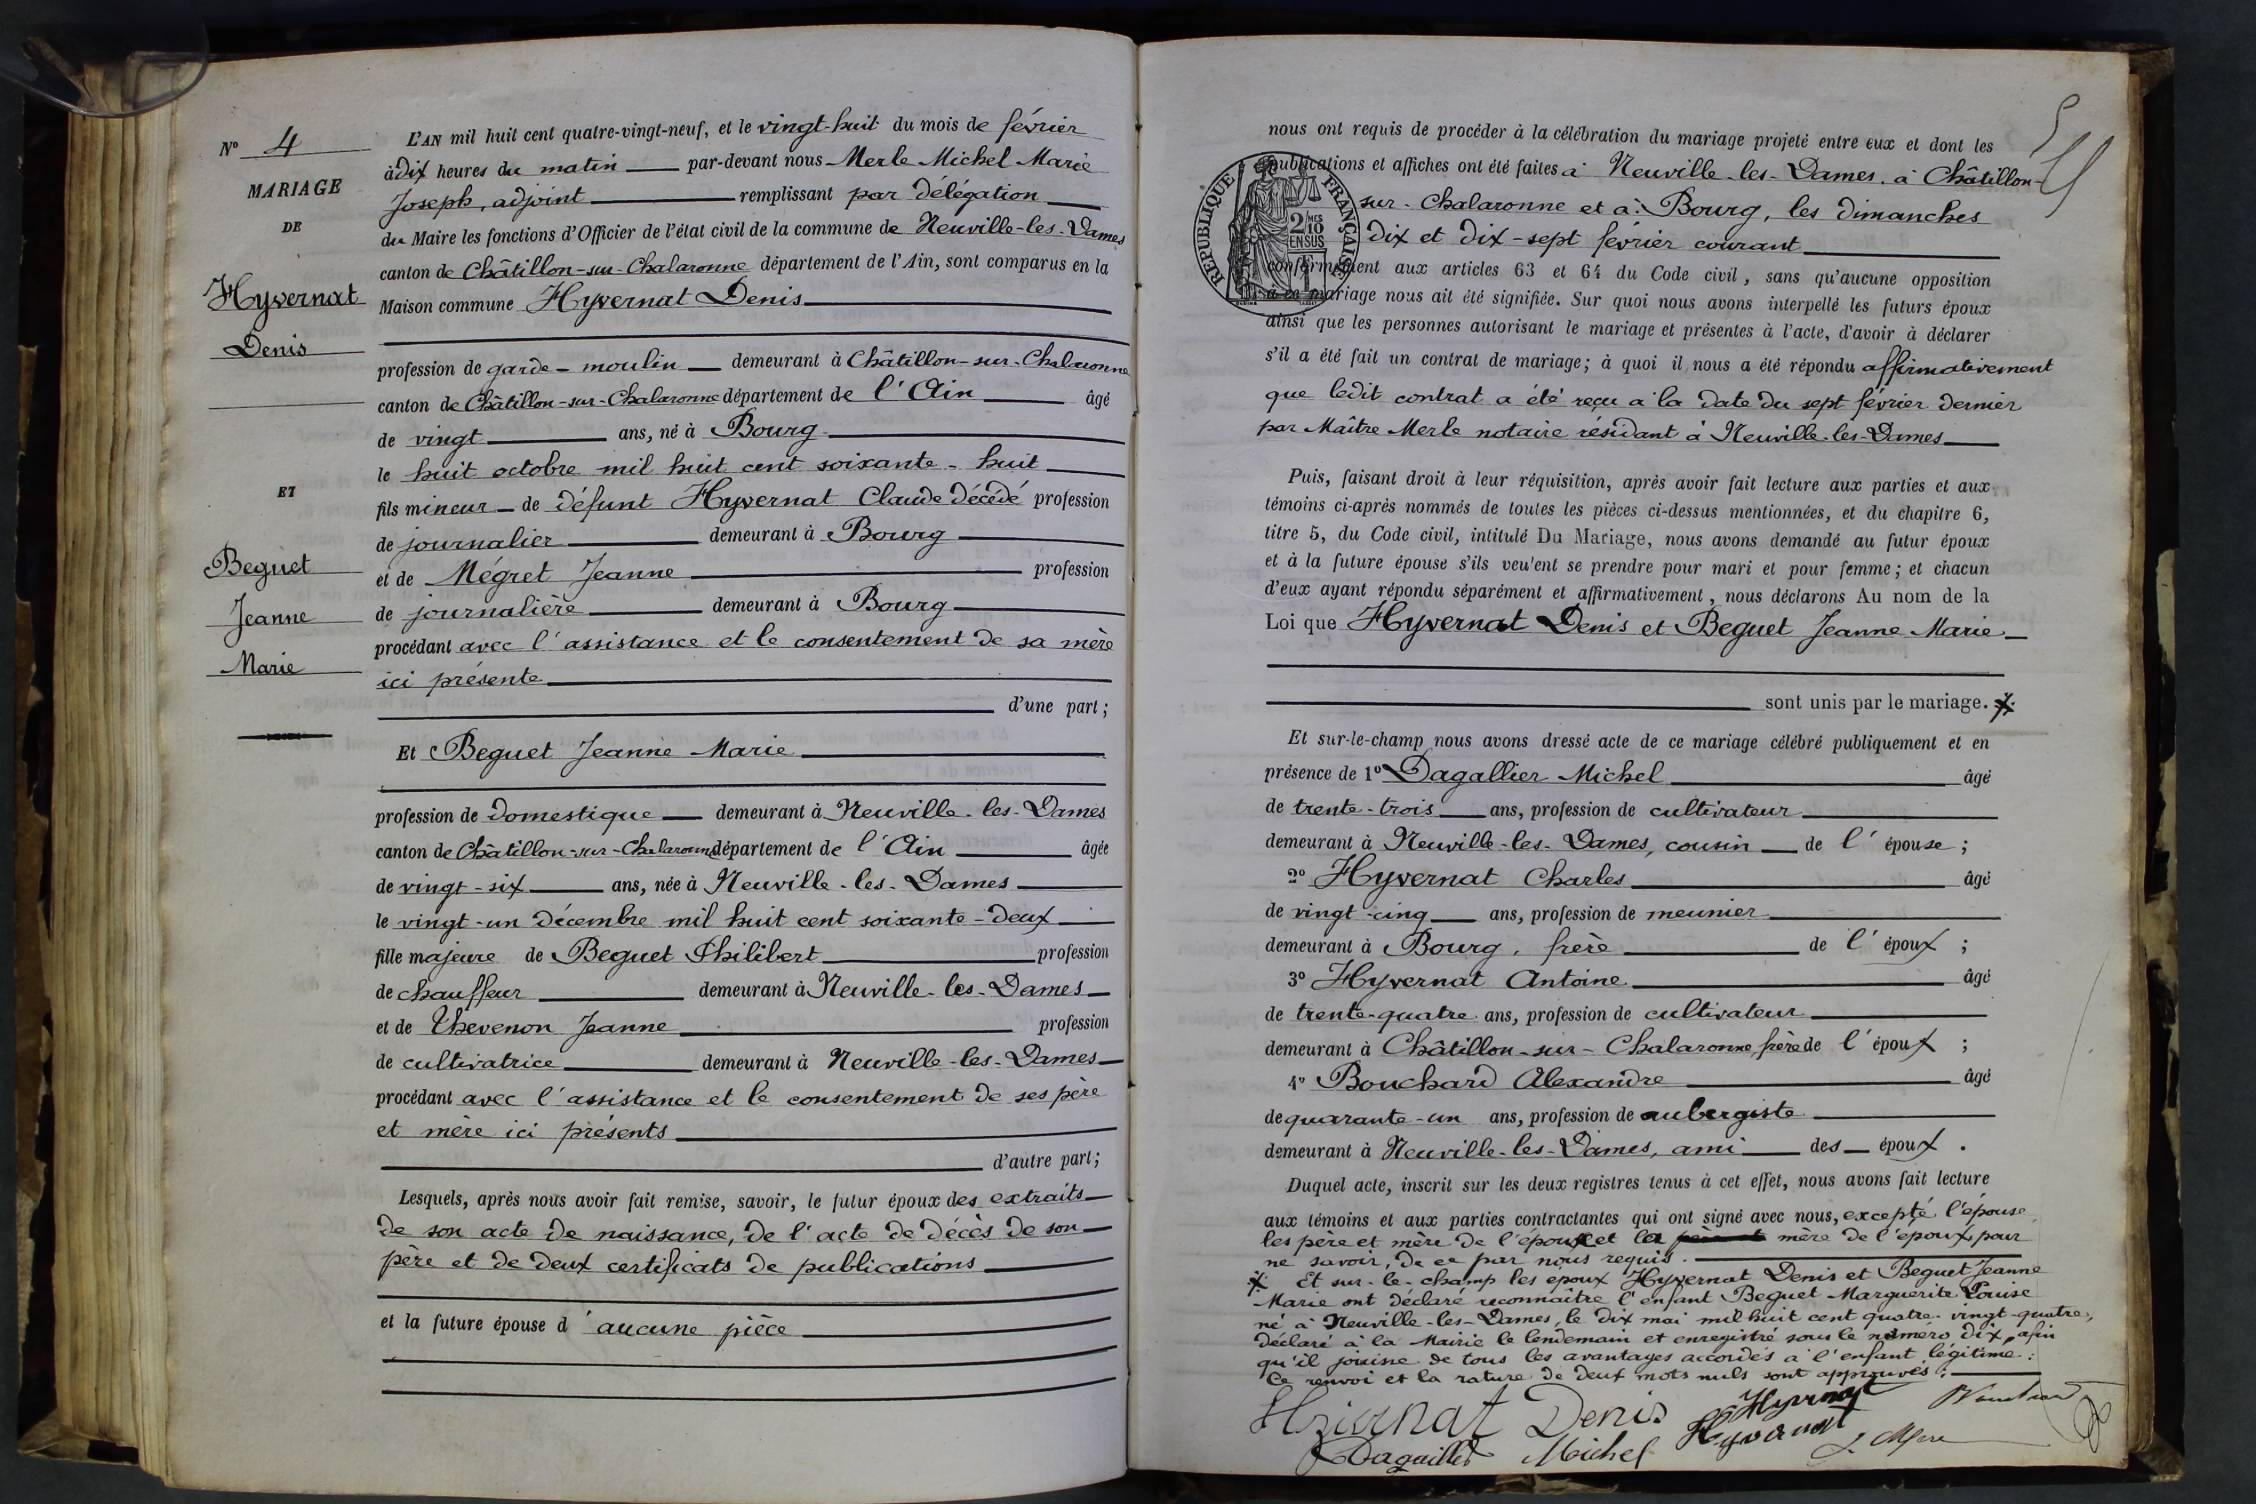 N° 4
MARIAGE
DE
Hyvernat
Denis
ET
Beguet
Jeanne
Marie
L'AN mil huit cent quatre-vingt-neuf, et le vingt-huit du mois de février
à dix heures du matin par-devant nous Merle Michel Marie
Joseph, adjoint remplissant par délégation
du Maire les fonctions d'Officier de l'état civil de la commune de Neuville-les-Dames
canton de Châtillon-sur-Chalaronne département de l'Ain, sont comparus en la
Maison commune Hyvernat Denis
profession de garde-moulin demeurant à Châtillon-sur-Chalaronne
canton de Châtillon-sur-Chalaronne département de l'Ain âgé
de vingt ans, né à Bourg
le huit octobre mil huit cent soixante-huit
fils mineur de défunt Hyvernat Claude décédé profession
de journalier demeurant à Bourg
et de Mégret Jeanne profession
de journalière demeurant à Bourg
procédant avec l'assistance et le consentement de sa mère
ici présente
d'une part;
Et Beguet Jeanne Marie
profession de domestique demeurant à Neuville-les-Dames
canton de Châtillon-sur-Chalaronne département de l'Ain âgée
de vingt-six ans, née à Neuville-les-Dames
le vingt-un décembre mil huit cent soixante-deux
fille majeure de Beguet Philibert profession
de chauffeur demeurant à Neuville-les-Dames
et de Thevenon Jeanne profession
de cultivatrice demeurant à Neuville-les-Dames
procédant avec l'assistance et le consentement de ses père
et mère ici présents
d'autre part;
Lesquels, après nous avoir fait remise, savoir, le futur époux des extraits
de son acte de naissance, de l'acte de décès de son
père et de deux certificats de publications
et la future épouse d'aucune pièce
5
nous ont requis de procéder à la célébration du mariage projeté entre eux et dont les
publications et affiches ont été faites à Neuville-les-Dames, à Châtillon-
sur-Chalaronne et à Bourg, les dimanches
dix et dix-sept février courant
RÉPUBLIQUE FRANÇAISE
2/10 MES
EN SUS
conformément aux articles 63 et 64 du Code civil, sans qu'aucune opposition
à ce mariage nous ait été signifiée. Sur quoi nous avons interpellé les futurs époux
ainsi que les personnes autorisant le mariage et présentes à l'acte, d'avoir à déclarer
s'il a été fait un contrat de mariage; à quoi il nous a été répondu affirmativement
que ledit contrat a été reçu à la date du sept février dernier
par Maître Merle notaire résidant à Neuville-les-Dames
Puis, faisant droit à leur réquisition, après avoir fait lecture aux parties et aux
témoins ci-après nommés de toutes les pièces ci-dessus mentionnées, et du chapitre 6,
titre 5, du Code civil, intitulé Du Mariage, nous avons demandé au futur époux
et à la future épouse s'ils veulent se prendre pour mari et pour femme; et chacun
d'eux ayant répondu séparément et affirmativement, nous déclarons Au nom de la
Loi que Hyvernat Denis et Beguet Jeanne Marie
sont unis par le mariage.
Et sur-le-champ nous avons dressé acte de ce mariage célébré publiquement et en
présence de 1° Dagallier Michel âgé
de trente-trois ans, profession de cultivateur
demeurant à Neuville-les-Dames, cousin de l'épouse;
2° Hyvernat Charles âgé
de vingt-cinq ans, profession de meunier
demeurant à Bourg, frère de l'époux;
3° Hyvernat Antoine âgé
de trente-quatre ans, profession de cultivateur
demeurant à Châtillon-sur-Chalaronne, frère de l'époux;
4° Bouchard Alexandre âgé
de quarante-un ans, profession de aubergiste
demeurant à Neuville-les-Dames, ami des époux.
Duquel acte, inscrit sur les deux registres tenus à cet effet, nous avons fait lecture
aux témoins et aux parties contractantes qui ont signé avec nous, excepté l'épouse
les père et mère de l'épouse et la mère de l'époux, pour
ne savoir, de ce par nous requis.
Et sur-le-champ les époux Hyvernat Denis et Beguet Jeanne
Marie ont déclaré reconnaître l'enfant Beguet Marguerite Louise
né à Neuville-les-Dames, le dix mai mil huit cent quatre-vingt-quatre,
déclaré à la Mairie le lendemain et enregistré sous le numéro dix, afin
qu'il jouisse de tous les avantages accordés à l'enfant légitime:
Ce renvoi et la rature de deux mots nuls sont approuvés:
Hyvernat Denis Hyvernat
Hyvernat
Michel